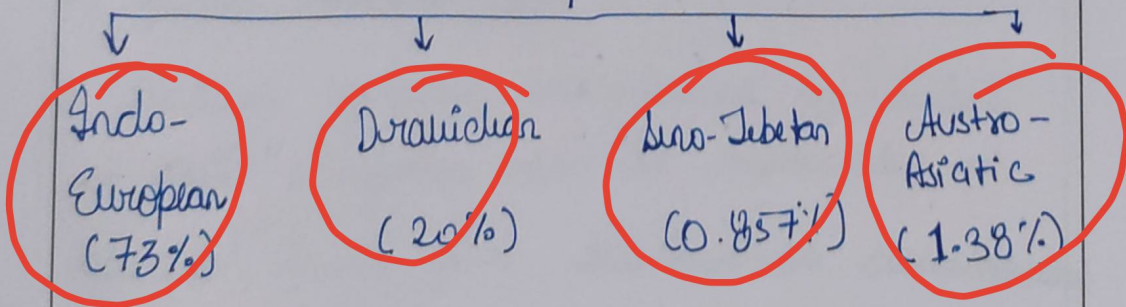 Indo-
European
(73%)
Dravidian
(20%)
Sino-Tebetan
(0.857%)
Austro-
Asiatic
(1.38%)